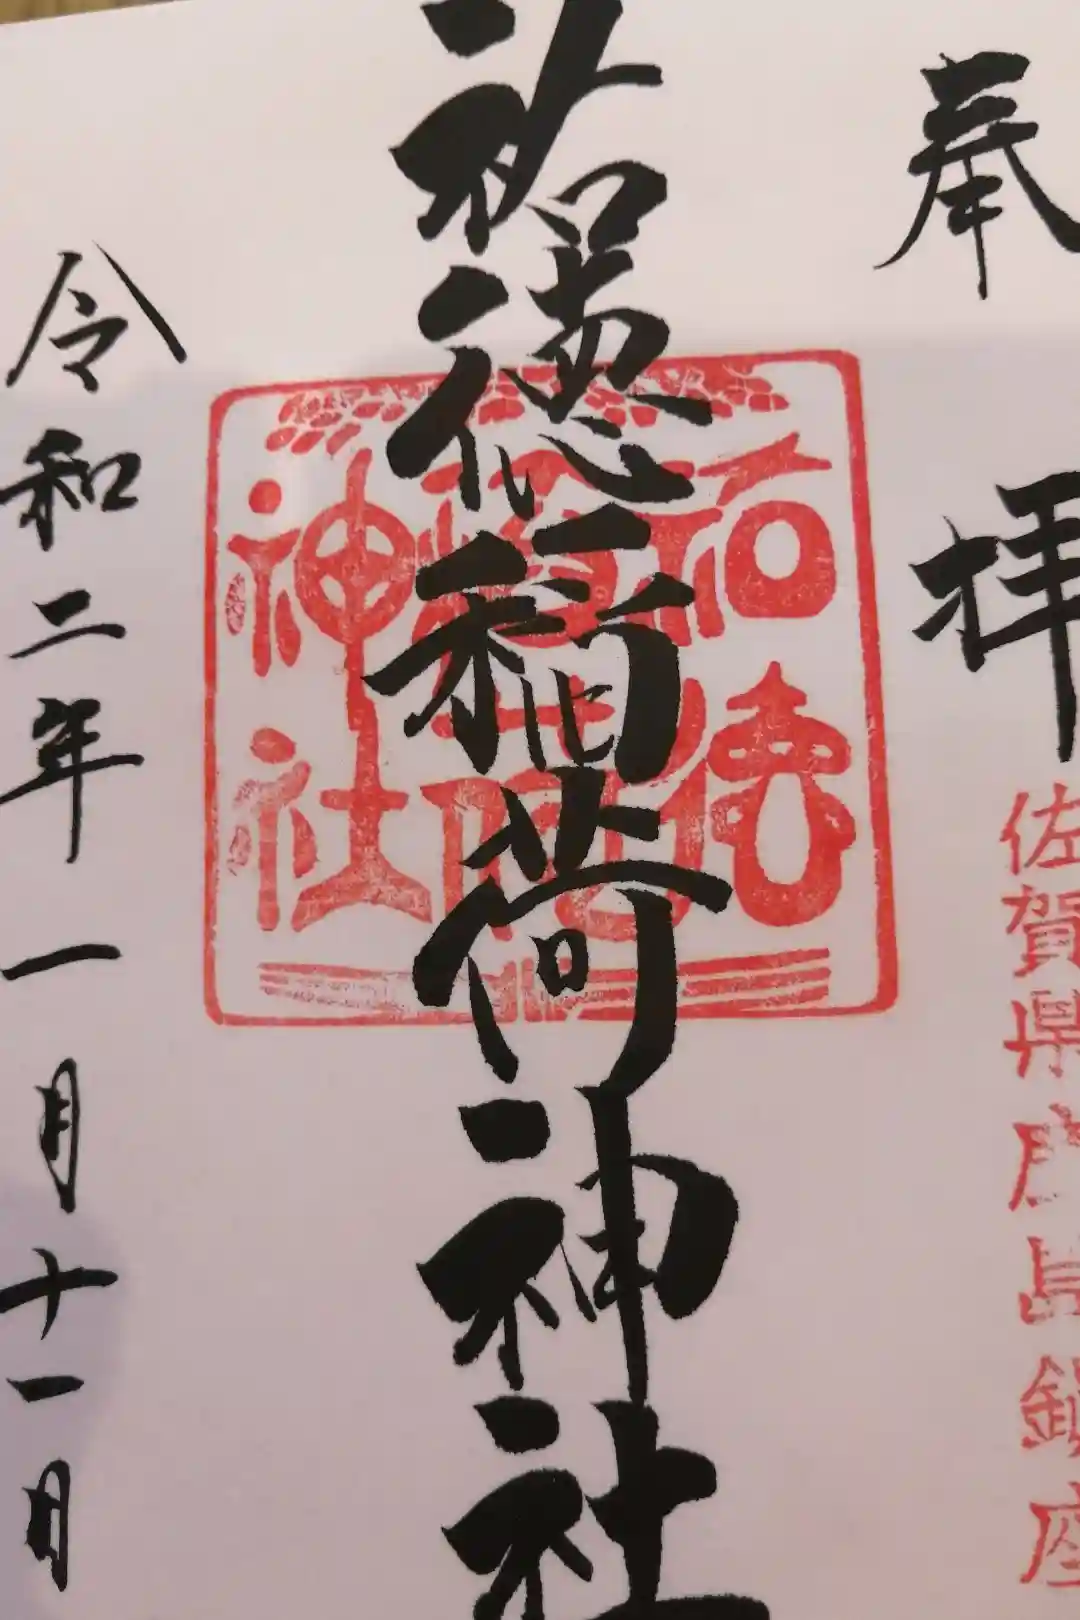 奉拝
佐賀県鹿島鎮座
祐徳稲荷神社
祐徳
稲荷
神社
令和二年一月十一日